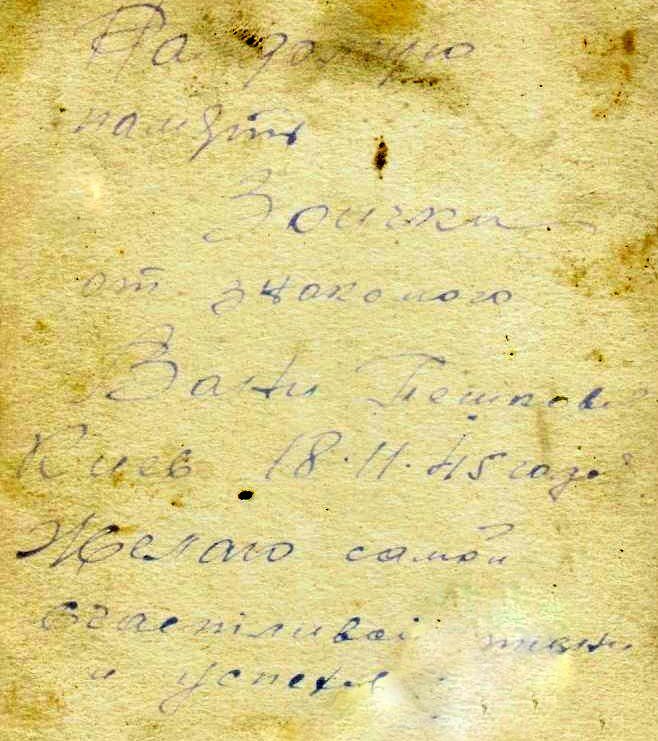 На долгую
память
Зоички
от знакомого
Вани Пешкова
Киев 18.11.45 года
Желаю самой
счастливой жизни
и успехов